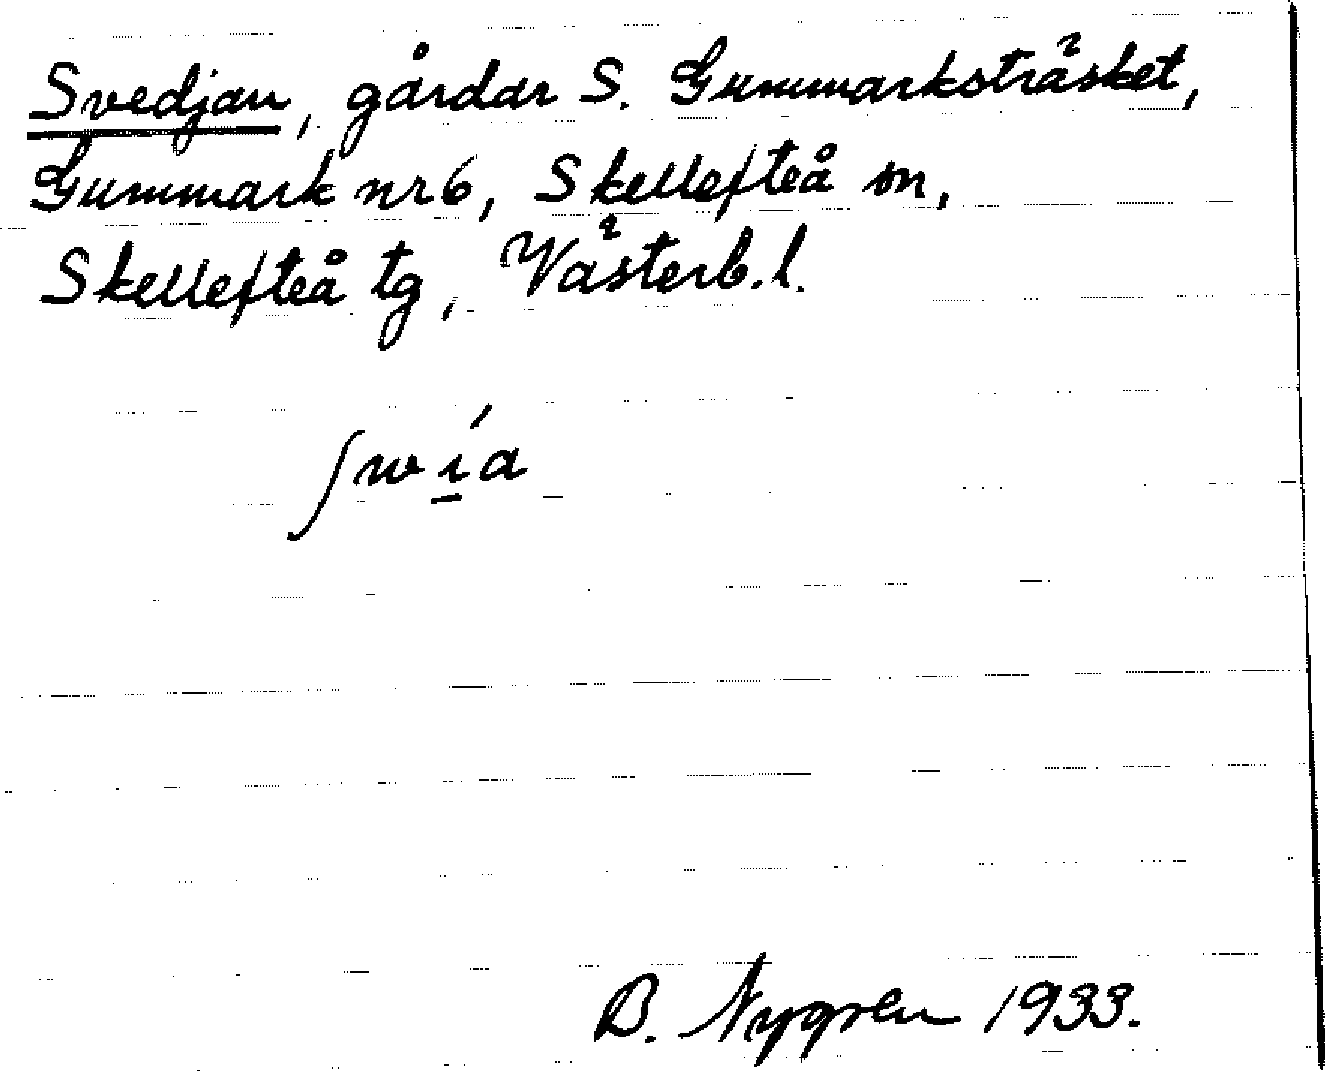 Svedjan, gårdar S. Gummarksträsket,
Gummark nr 6, Skellefteå sn,
Skellefteå tg, Västerb. l.
ʃwi̱´a
B. Nygren 1933.